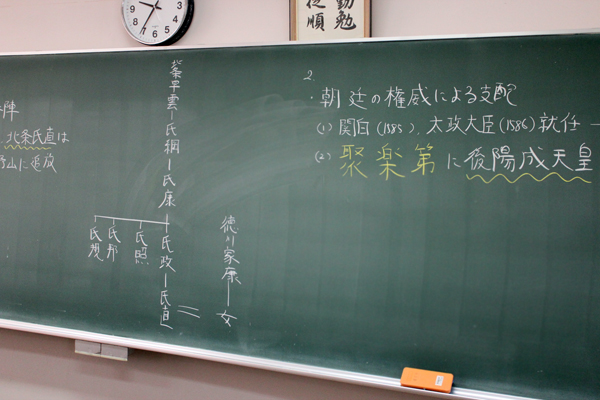 勤勉
従順
2.
・朝廷の権威による支配
(1) 関白(1585)、太政大臣(1586)就任 −
(2) 聚楽第に後陽成天皇
北条早雲−氏綱−氏康
氏政−氏直
氏照
氏邦
氏規
徳川家康−女
陣
北条氏直は
野山に追放